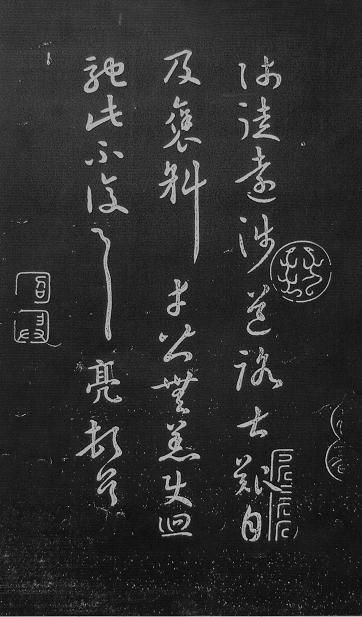 師徒遠涉道路甚艱自
及褒斜幸皆無恙使回
馳此不復云云亮頓首